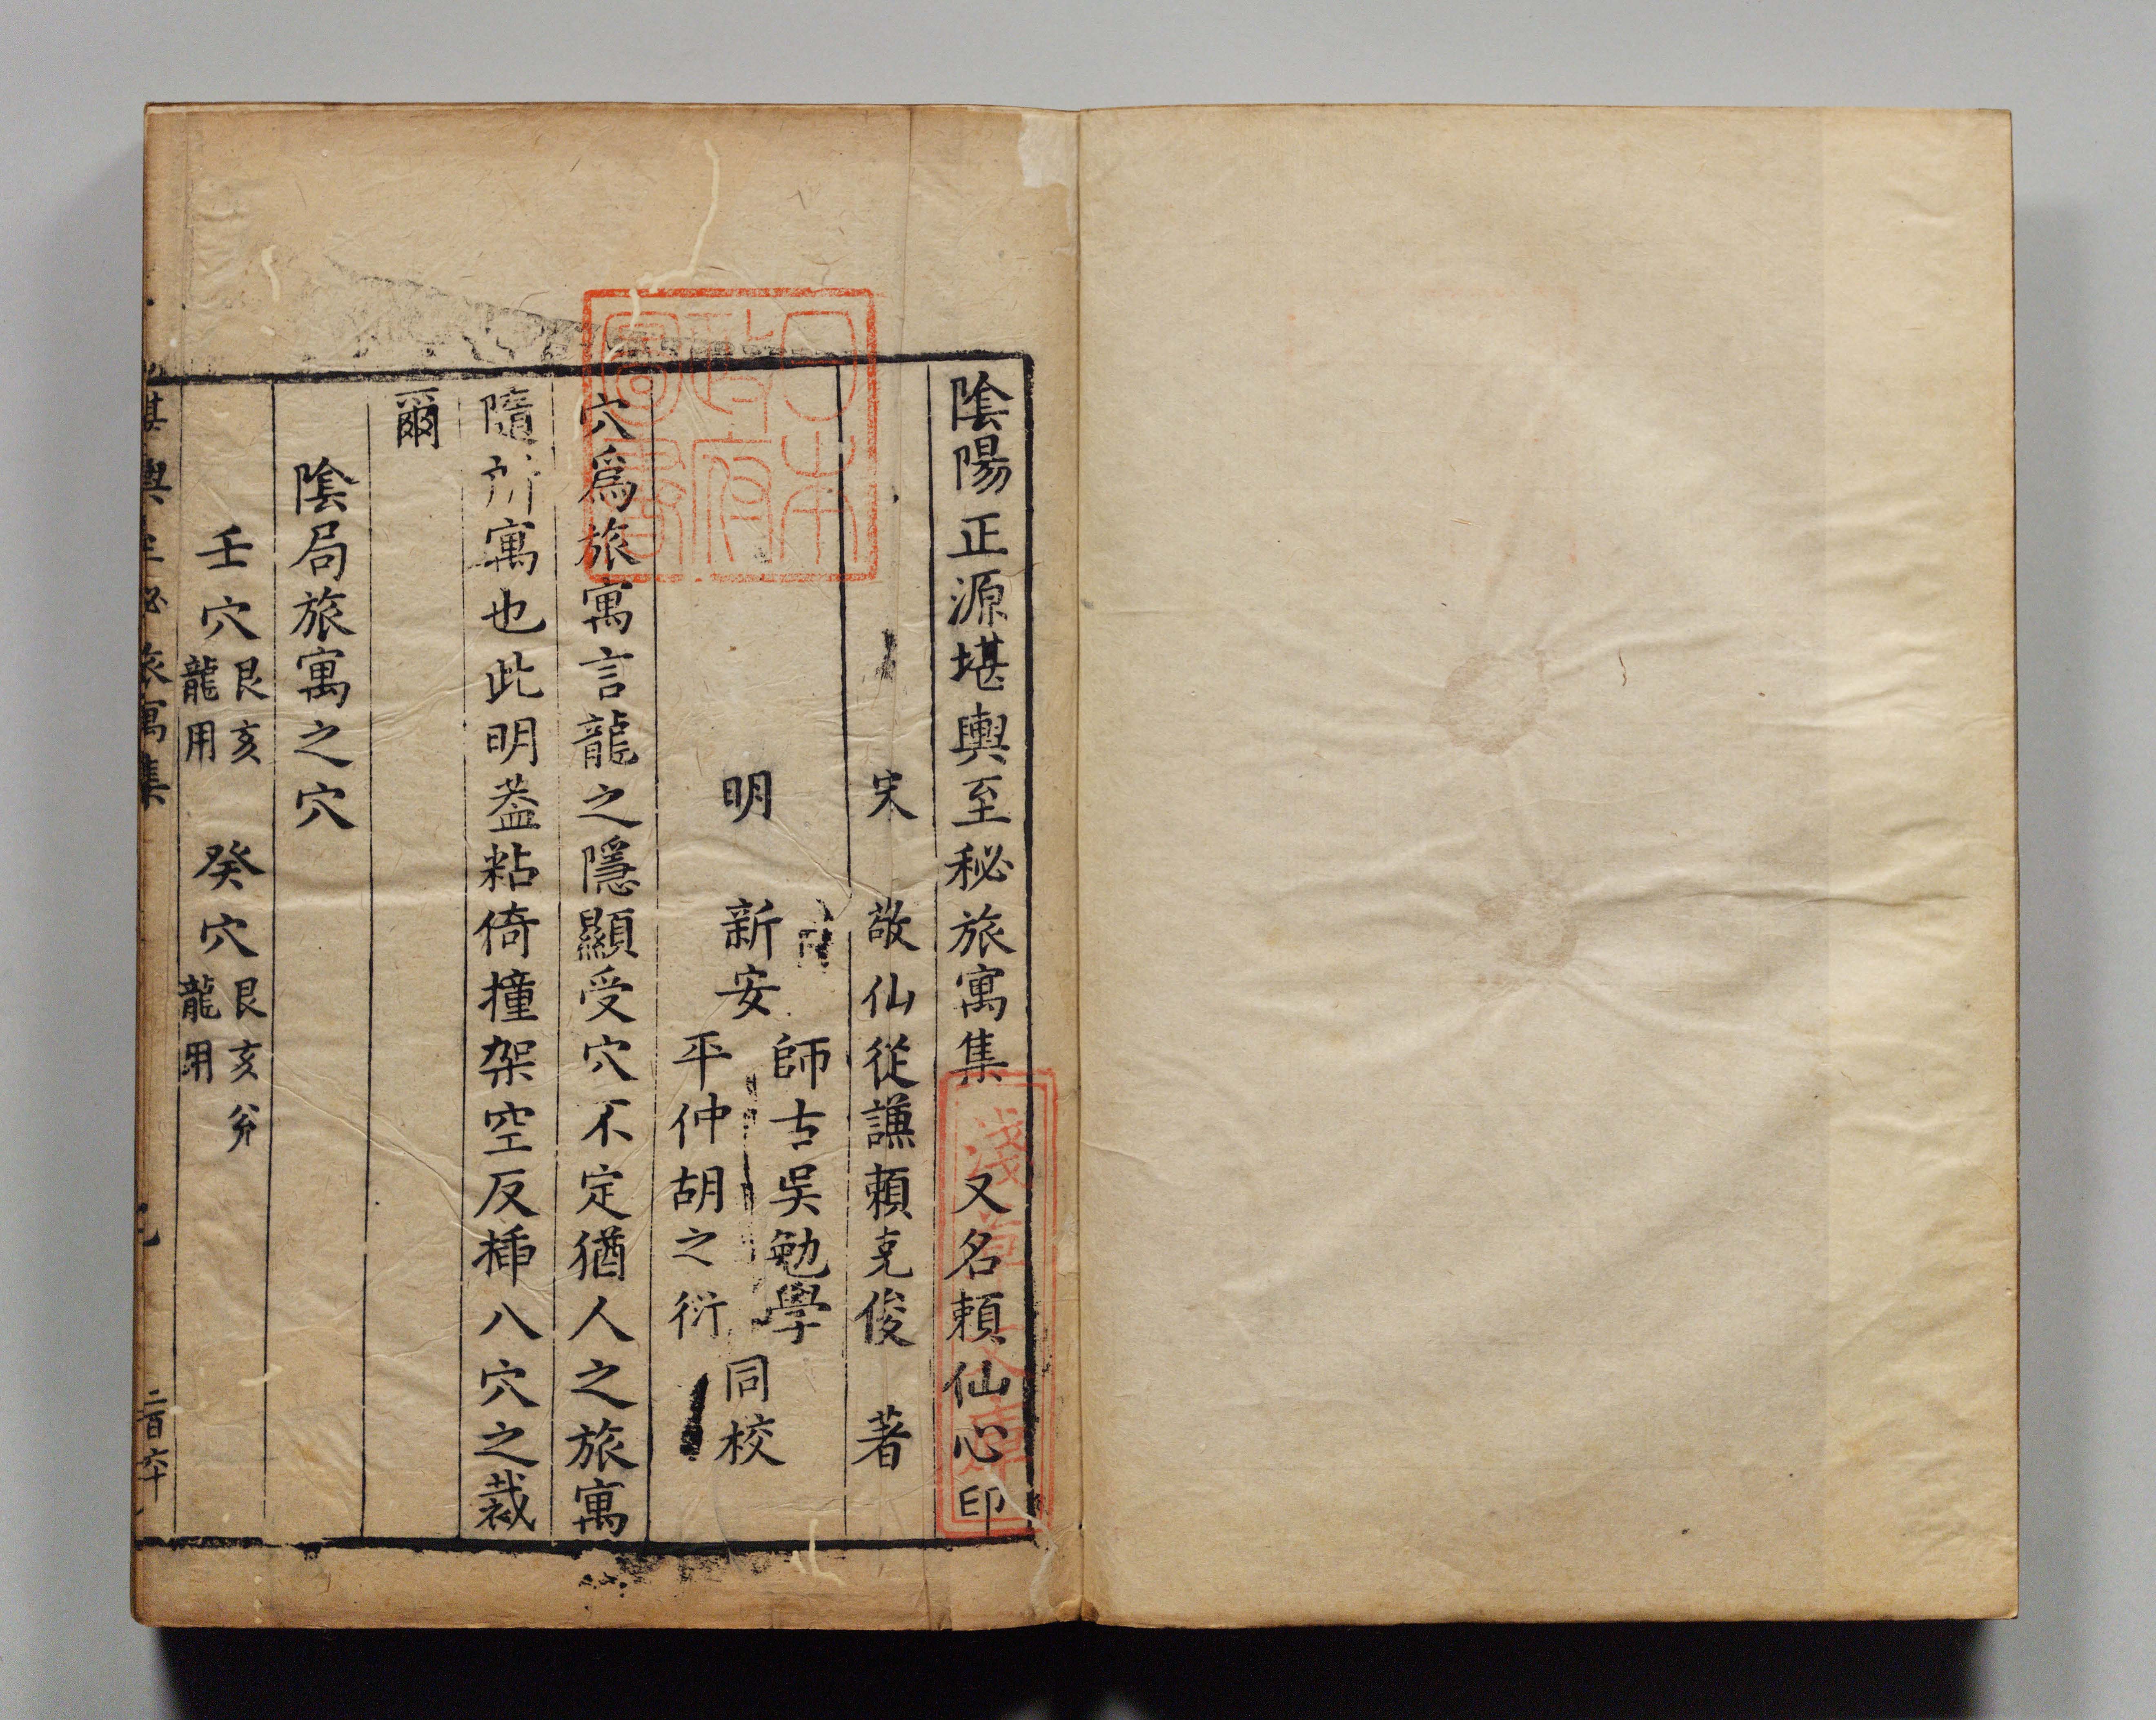 陰陽正源堪輿至秘旅寓集　又名賴仙心印
宋　敬仙從謙賴克俊　著
明　新安
師古吳勉學
平仲胡之衍
同校
穴爲旅寓言龍之隱顯受穴不定猶人之旅寓
隨所寓也此明葢粘倚撞架空反揷八穴之裁
爾
陰局旅寓之穴
壬穴艮亥龍用　癸穴艮亥龍用
堪輿至秘旅寓集
日本政府圖書
淺草文庫